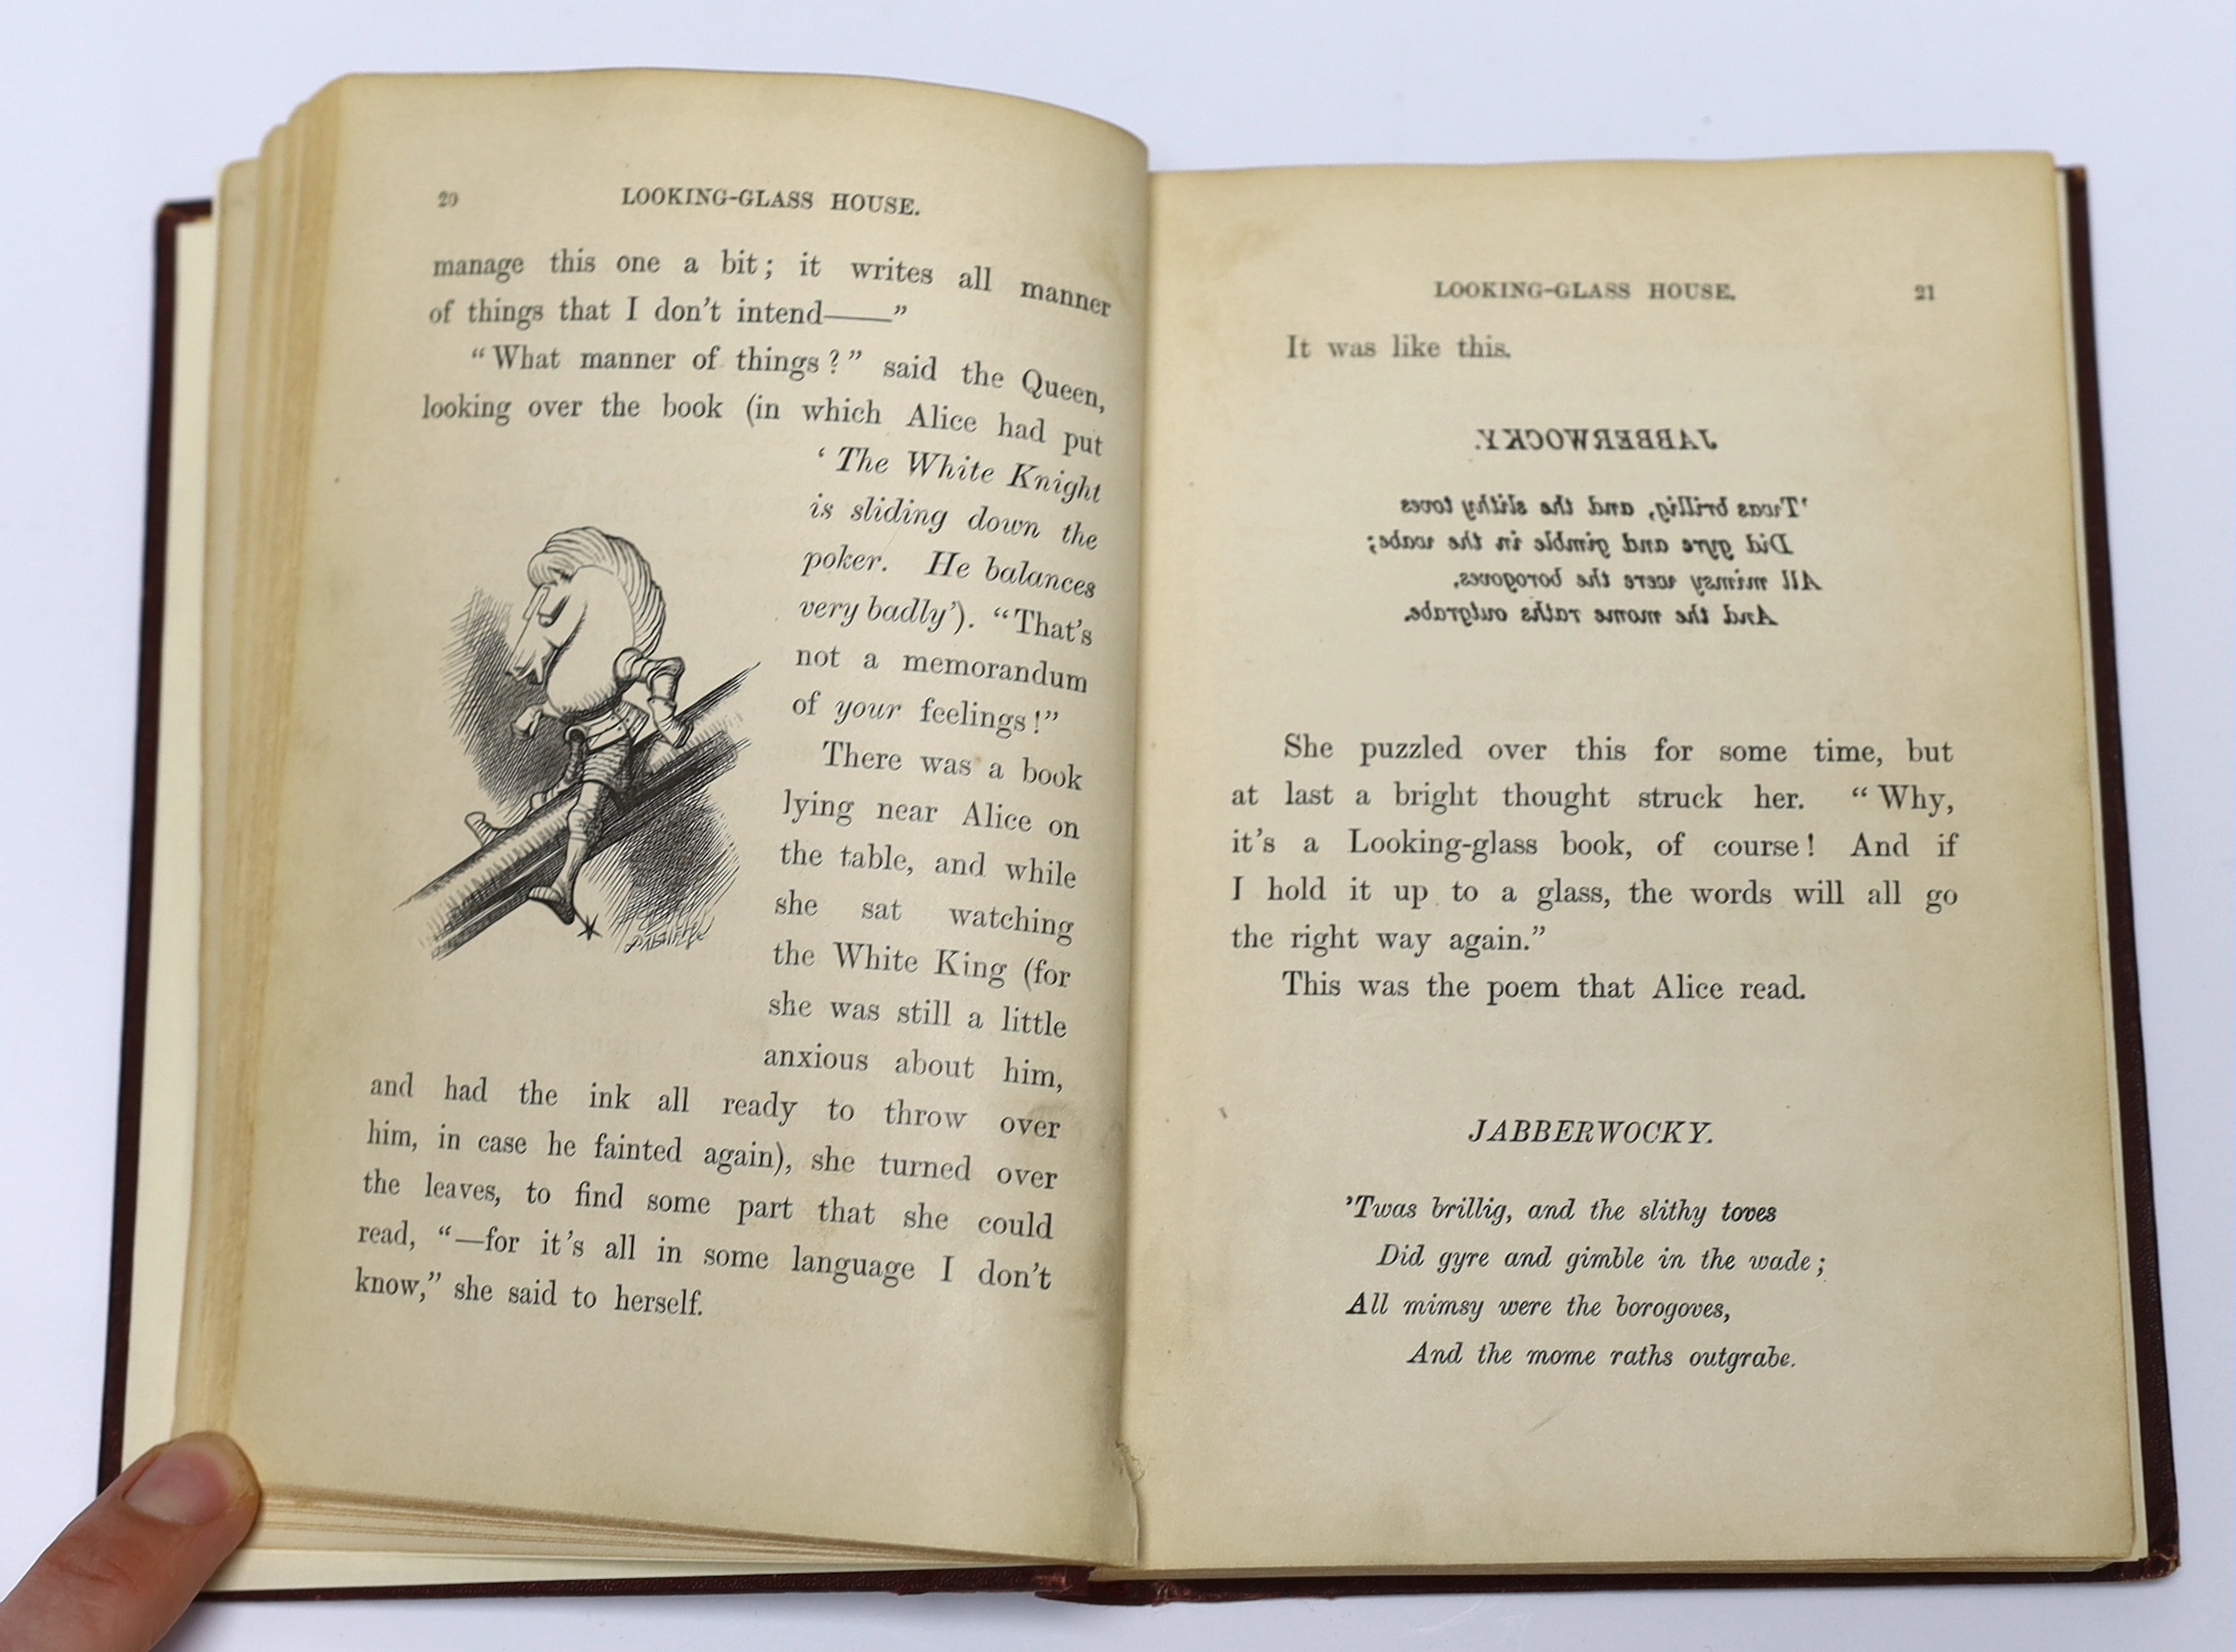 20
LOOKING-GLASS HOUSE.
manage this one a bit; it writes all manner
of things that I don't intend——”
“What manner of things?” said the Queen,
looking over the book (in which Alice had put
‘The White Knight
is sliding down the
poker. He balances
very badly’). “That's
not a memorandum
of your feelings!”
There was a book
lying near Alice on
the table, and while
she sat watching
the White King (for
she was still a little
anxious about him,
and had the ink all ready to throw over
him, in case he fainted again), she turned over
the leaves, to find some part that she could
read, “—for it's all in some language I don't
know,” she said to herself.
LOOKING-GLASS HOUSE.
21
It was like this.
JABBERWOCKY.
’Twas brillig, and the slithy toves
Did gyre and gimble in the wabe;
All mimsy were the borogoves,
And the mome raths outgrabe.
She puzzled over this for some time, but
at last a bright thought struck her. “Why,
it's a Looking-glass book, of course! And if
I hold it up to a glass, the words will all go
the right way again.”
This was the poem that Alice read.
JABBERWOCKY.
’Twas brillig, and the slithy toves
Did gyre and gimble in the wade;
All mimsy were the borogoves,
And the mome raths outgrabe.